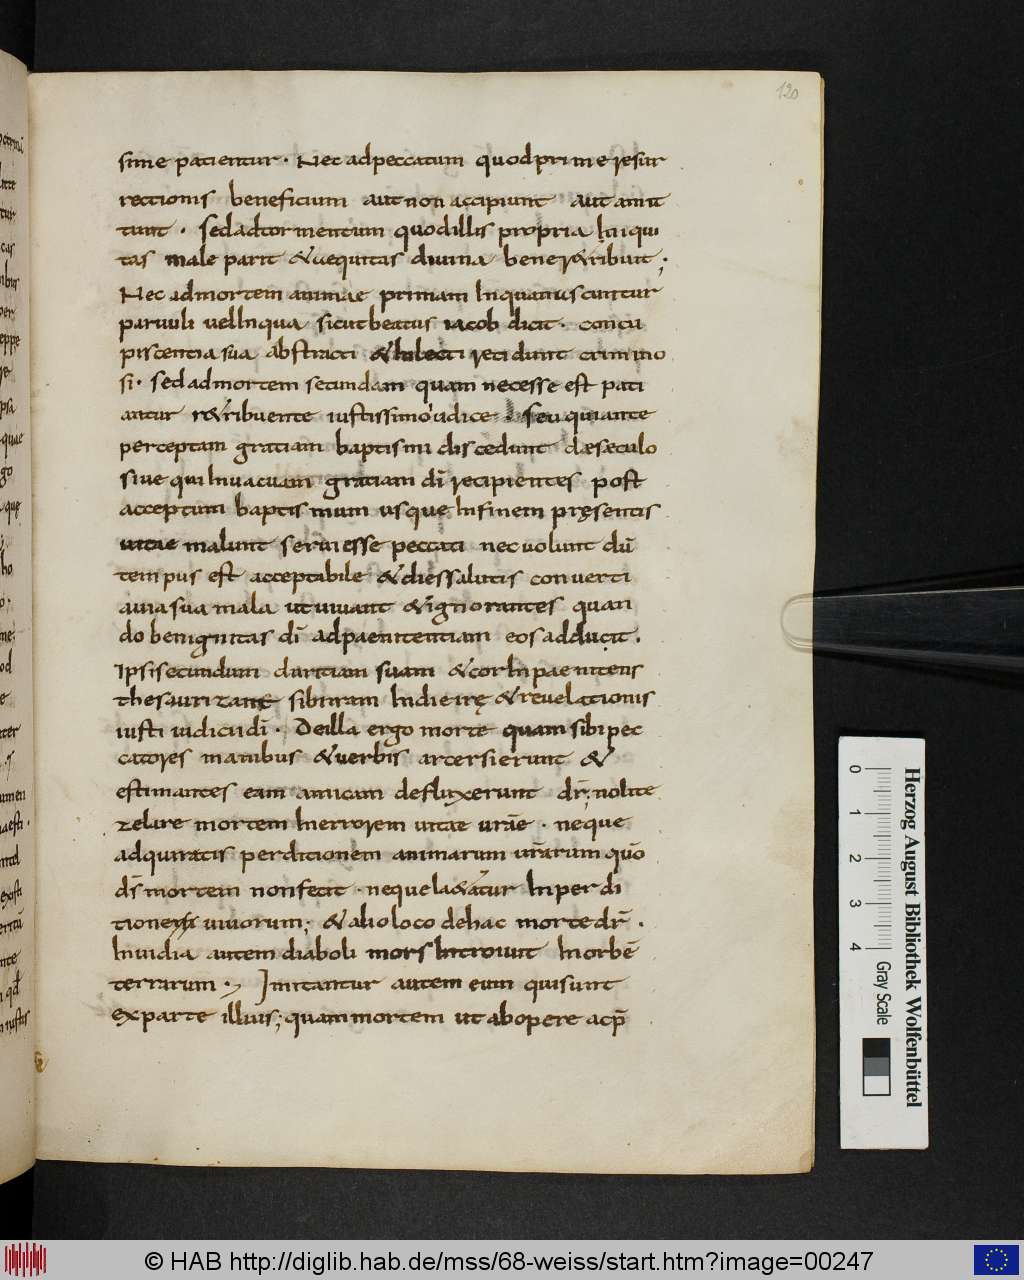 120
sime patientur · Nec adpeccatum quodprime resur
rectionis beneficium aut non accipiunt aut amit
tunt · sedadtormentum quodillis propria Iniqui
tas male parit &aequitas divina bene r&ribuit;
Nec admortem animae primam Inquanascuntur
parvuli velInqua sicut beatus iacob dicit · concu
piscentia sua abstracti & recidunt crimino
si · sed admortem secundam quam necesse est pati
antur r&ribuente iustissimo iudice · seu quiante
perceptam gratiam baptismi discedunt desaeculo
sive qui Invacuam gratiam dī recipientes post
acceptum baptismum usque Infinem pręsentis
vitae malunt servi esse peccati nec volunt dū
tempus est acceptabile &dies salutis converti
a via sua mala ut vivant &ignorantes quan
do benignitas dī adpaenitentiam eos adducit ·
Ipsi secundum duritiam suam &cor Inpaenitens
thesaurizant sibi iram Indie irę &revelationis
iusti iudicii dī · De illa ergo morte quam sibi pec
catores manibus &verbis arcersierunt &
estimantes eam amicam defluxerunt dr̄; nolite
zelare mortem Inerrorem vitae vrāe · neque
adquiratis perditionem animarum vrārum quō
dś mortem non fecit · neque la&atur Inperdi
tione vivorum; &alio loco de hac morte dr̄ ·
Invidia autem diaboli mors Introivit Inorbē
terrarum · Imitantur autem eum qui sunt
ex parte illius; quam mortem ut ab opere acp̄
Herzog August Bibliothek Wolfenbüttel
0 1 2 3 4 Gray Scale
© HAB http://diglib.hab.de/mss/68-weiss/start.htm?image=00247